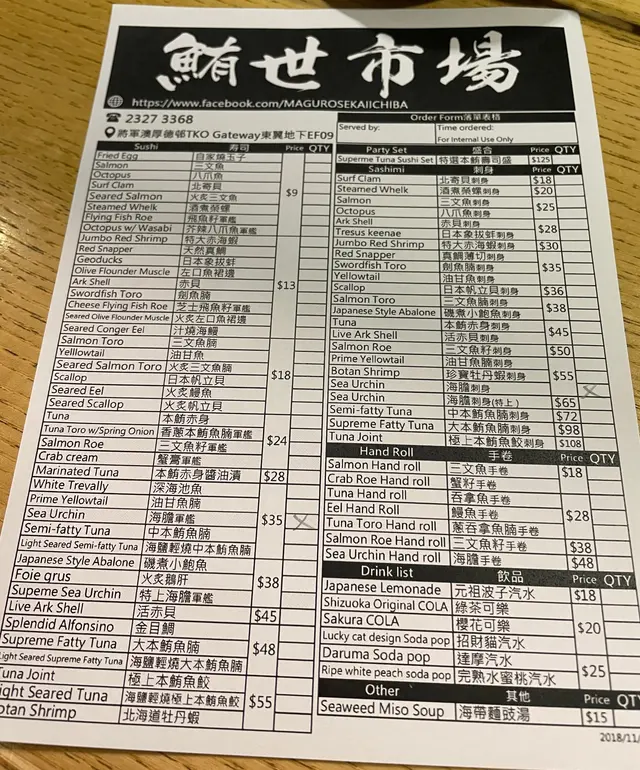 鮪世市場
https://www.facebook.com/MAGUROSEKAIICHIBA
2327 3368
將軍澳厚德邨TKO Gateway東翼地下EF09
Order Form落單表格
Served by: Time ordered:
For Internal Use Only
Sushi 壽司 Price QTY
Fried Egg 自家燒玉子
Salmon 三文魚
Octopus 八爪魚
Surf Clam 北寄貝 $9
Seared Salmon 火炙三文魚
Steamed Whelk 酒煮螺
Flying Fish Roe 飛魚籽軍艦
Octopus w/ Wasabi 芥辣八爪魚軍艦
Jumbo Red Shrimp 特大赤海蝦
Red Snapper 天然真鯛
Geoducks 日本象拔蚌
Olive Flounder Muscle 左口魚裙邊
Ark Shell 赤貝 $13
Swordfish Toro 劍魚腩
Cheese Flying Fish Roe 芝士飛魚籽軍艦
Seared Olive Flounder Muscle 火炙左口魚裙邊
Seared Conger Eel 汁燒海鰻
Salmon Toro 三文魚腩
Yelllowtail 油甘魚
Seared Salmon Toro 火炙三文魚腩 $18
Scallop 日本帆立貝
Seared Eel 火炙鰻魚
Seared Scallop 火炙帆立貝
Tuna 本鮪赤身
Tuna Toro w/Spring Onion 香蔥本鮪魚腩軍艦 $24
Salmon Roe 三文魚籽軍艦
Crab cream 蟹膏軍艦
Marinated Tuna 本鮪赤身醬油漬 $28
White Trevally 深海池魚
Prime Yellowtail 油甘魚腩
Sea Urchin 海膽軍艦 $35
Semi-fatty Tuna 中本鮪魚腩
Light Seared Semi-fatty Tuna 海鹽輕燒中本鮪魚腩
Japanese Style Abalone 磯煮小鮑魚
Foie grus 火炙鵝肝 $38
Supeme Sea Urchin 特上海膽軍艦
Live Ark Shell 活赤貝 $45
Splendid Alfonsino 金目鯛
Supreme Fatty Tuna 大本鮪魚腩 $48
Light Seared Supreme Fatty Tuna 海鹽輕燒大本鮪魚腩
Tuna Joint 極上本鮪魚鮫
ight Seared Tuna 海鹽輕燒極上本鮪魚鮫 $55
otan Shrimp 北海道牡丹蝦
Party Set 盛合 Price QTY
Superme Tuna Sushi Set 特選本鮪壽司盛 $125
Sashimi 刺身 Price QTY
Surf Clam 北寄貝刺身 $18
Steamed Whelk 酒煮螺刺身 $20
Salmon 三文魚刺身 $25
Octopus 八爪魚刺身
Ark Shell 赤貝刺身 $28
Tresus keenae 日本象拔蚌刺身
Jumbo Red Shrimp 特大赤海蝦刺身 $30
Red Snapper 真鯛薄切刺身
Swordfish Toro 劍魚腩刺身 $35
Yellowtail 油甘魚刺身
Scallop 日本帆立貝刺身 $36
Salmon Toro 三文魚腩刺身 $38
Japanese Style Abalone 磯煮小鮑魚刺身
Tuna 本鮪赤身刺身 $45
Live Ark Shell 活赤貝刺身
Salmon Roe 三文魚籽刺身 $50
Prime Yellowtail 油甘魚腩刺身
Botan Shrimp 珍寶牡丹蝦刺身 $55
Sea Urchin 海膽刺身
Sea Urchin 海膽刺身(特上) $65
Semi-fatty Tuna 中本鮪魚腩刺身 $72
Supreme Fatty Tuna 大本鮪魚腩刺身 $98
Tuna Joint 極上本鮪魚鮫刺身 $108
Hand Roll 手卷 Price QTY
Salmon Hand roll 三文魚手卷 $18
Crab Roe Hand roll 蟹籽手卷
Tuna Hand roll 吞拿魚手卷
Eel Hand Roll 鰻魚手卷 $28
Tuna Toro Hand roll 蔥吞拿魚腩手卷
Salmon Roe Hand roll 三文魚籽手卷 $38
Sea Urchin Hand roll 海膽手卷 $48
Drink list 飲品 Price QTY
Japanese Lemonade 元祖波子汽水 $18
Shizuoka Original COLA 綠茶可樂
Sakura COLA 櫻花可樂 $20
Lucky cat design Soda pop 招財貓汽水
Daruma Soda pop 達摩汽水 $25
Ripe white peach soda pop 完熟水蜜桃汽水
Other 其他 Price QTY
Seaweed Miso Soup 海帶麵豉湯 $15
2018/11/